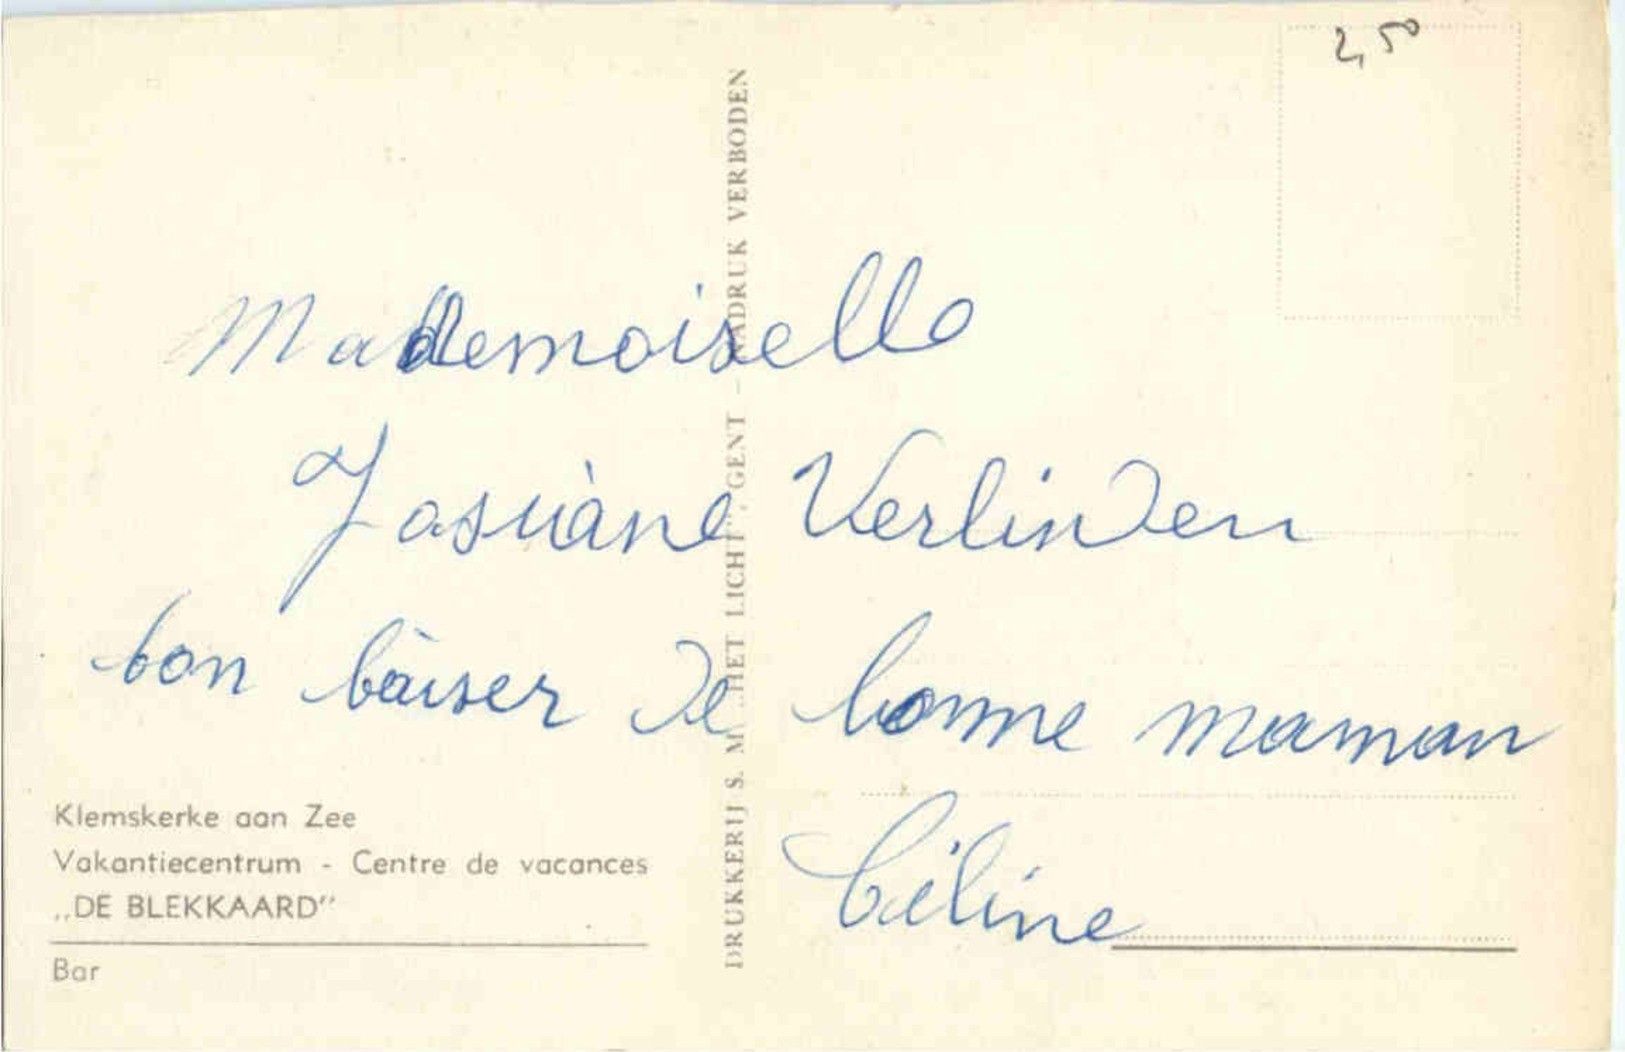 2,50
Mademoiselle
Josiàne Verlinden
bon bàiser de bonne maman
Céline
Klemskerke aan Zee
Vakantiecentrum - Centre de vacances
„DE BLEKKAARD”
Bar
DRUKKERIJ S. M. „HET LICHT”, GENT - NADRUK VERBODEN